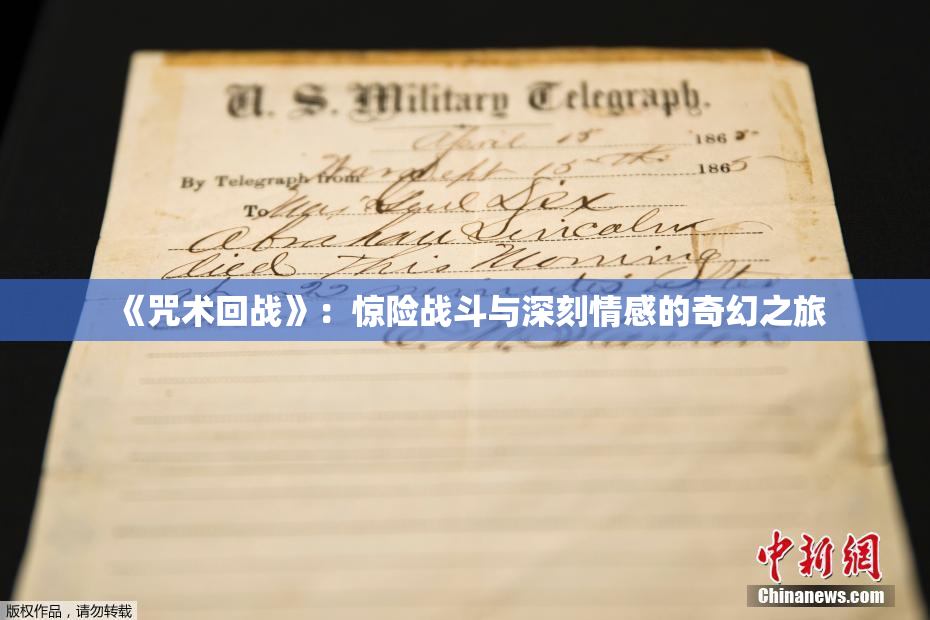 U. S. Military Telegraph.
April 15 1865
By Telegraph from War Dept 15th 1865
To Maj Genl Dix
Abraham Lincoln
died This Morning
22 minutes after
《咒术回战》：惊险战斗与深刻情感的奇幻之旅
E. M. Stanton
中新網
Chinanews.com
版权作品，请勿转载